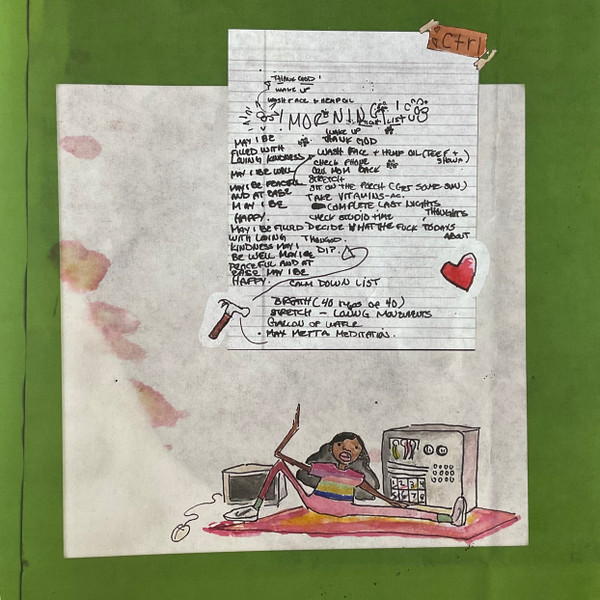 Ctrl
THANK GOD!
WAKE UP
WASH FACE + HEMP OIL
MORNING LIST
WAKE UP
THANK GOD
MAY I BE
FILLED WITH
LOVING KINDNESS
WASH FACE + HEMP OIL (TEEF +
CHECK PHONE
MAY I BE WELL
CALL MOM BACK
STRETCH
MAY I BE PEACEFUL
AND AT EASE
SIT ON THE PORCH (GET SOME SUN)
TAKE VITAMINS
MAY I BE
HAPPY.
COMPLETE LAST NIGHTS
THOUGHTS
CHECK STUDIO TIME
MAY I BE FILLED
WITH LOVING
KINDNESS MAY I
BE WELL MAY I BE
PEACEFUL AND AT
EASE MAY I BE
HAPPY.
DECIDE WHAT THE FUCK TODAYS
ABOUT
DIP.
CALM DOWN LIST
BREATH (40 OF 40)
STRETCH - LOVING MOVEMENTS
GALLON OF WATER
METTA MEDITATION.
1 2 3 4